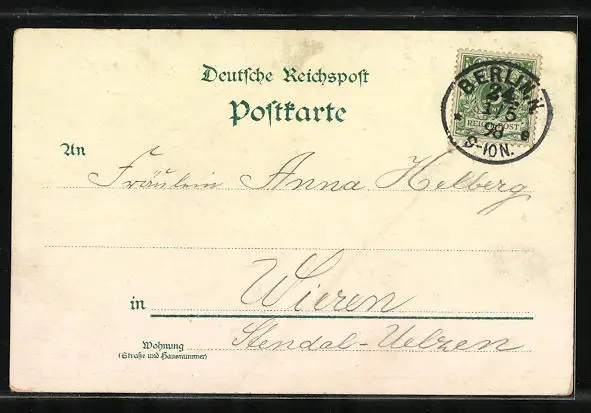 Deutsche Reichspost
Postkarte
BERLIN. N.
24
5
98
9-10N.
REICHSPOST
An
Fräulein Anna Helberg
in Wieren
Wohnung
(Straße und Hausnummer)
Stendal-Uelzen